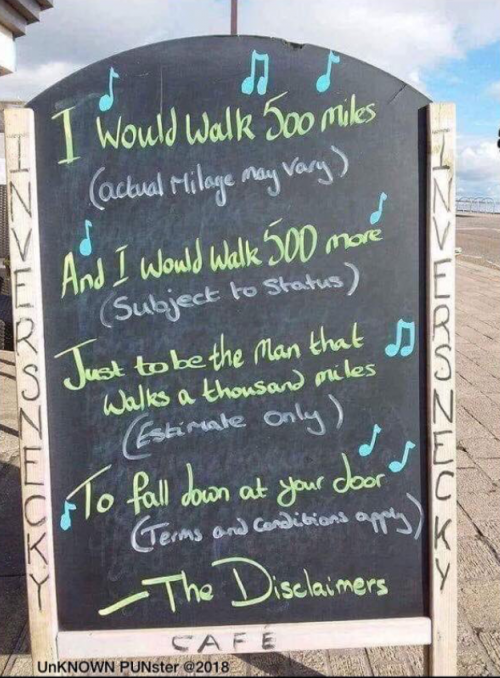 I Would Walk 500 miles
(actual Milage may Vary)
And I Would Walk 500 more
(Subject to Status)
Just to be the Man that
Walks a thousand miles
(Estimate only)
To fall down at your door
(Terms and Conditions apply)
– The Disclaimers
INVERSNECKY
INVERSNECKY
CAFE
UnKNOWN PUNster @2018